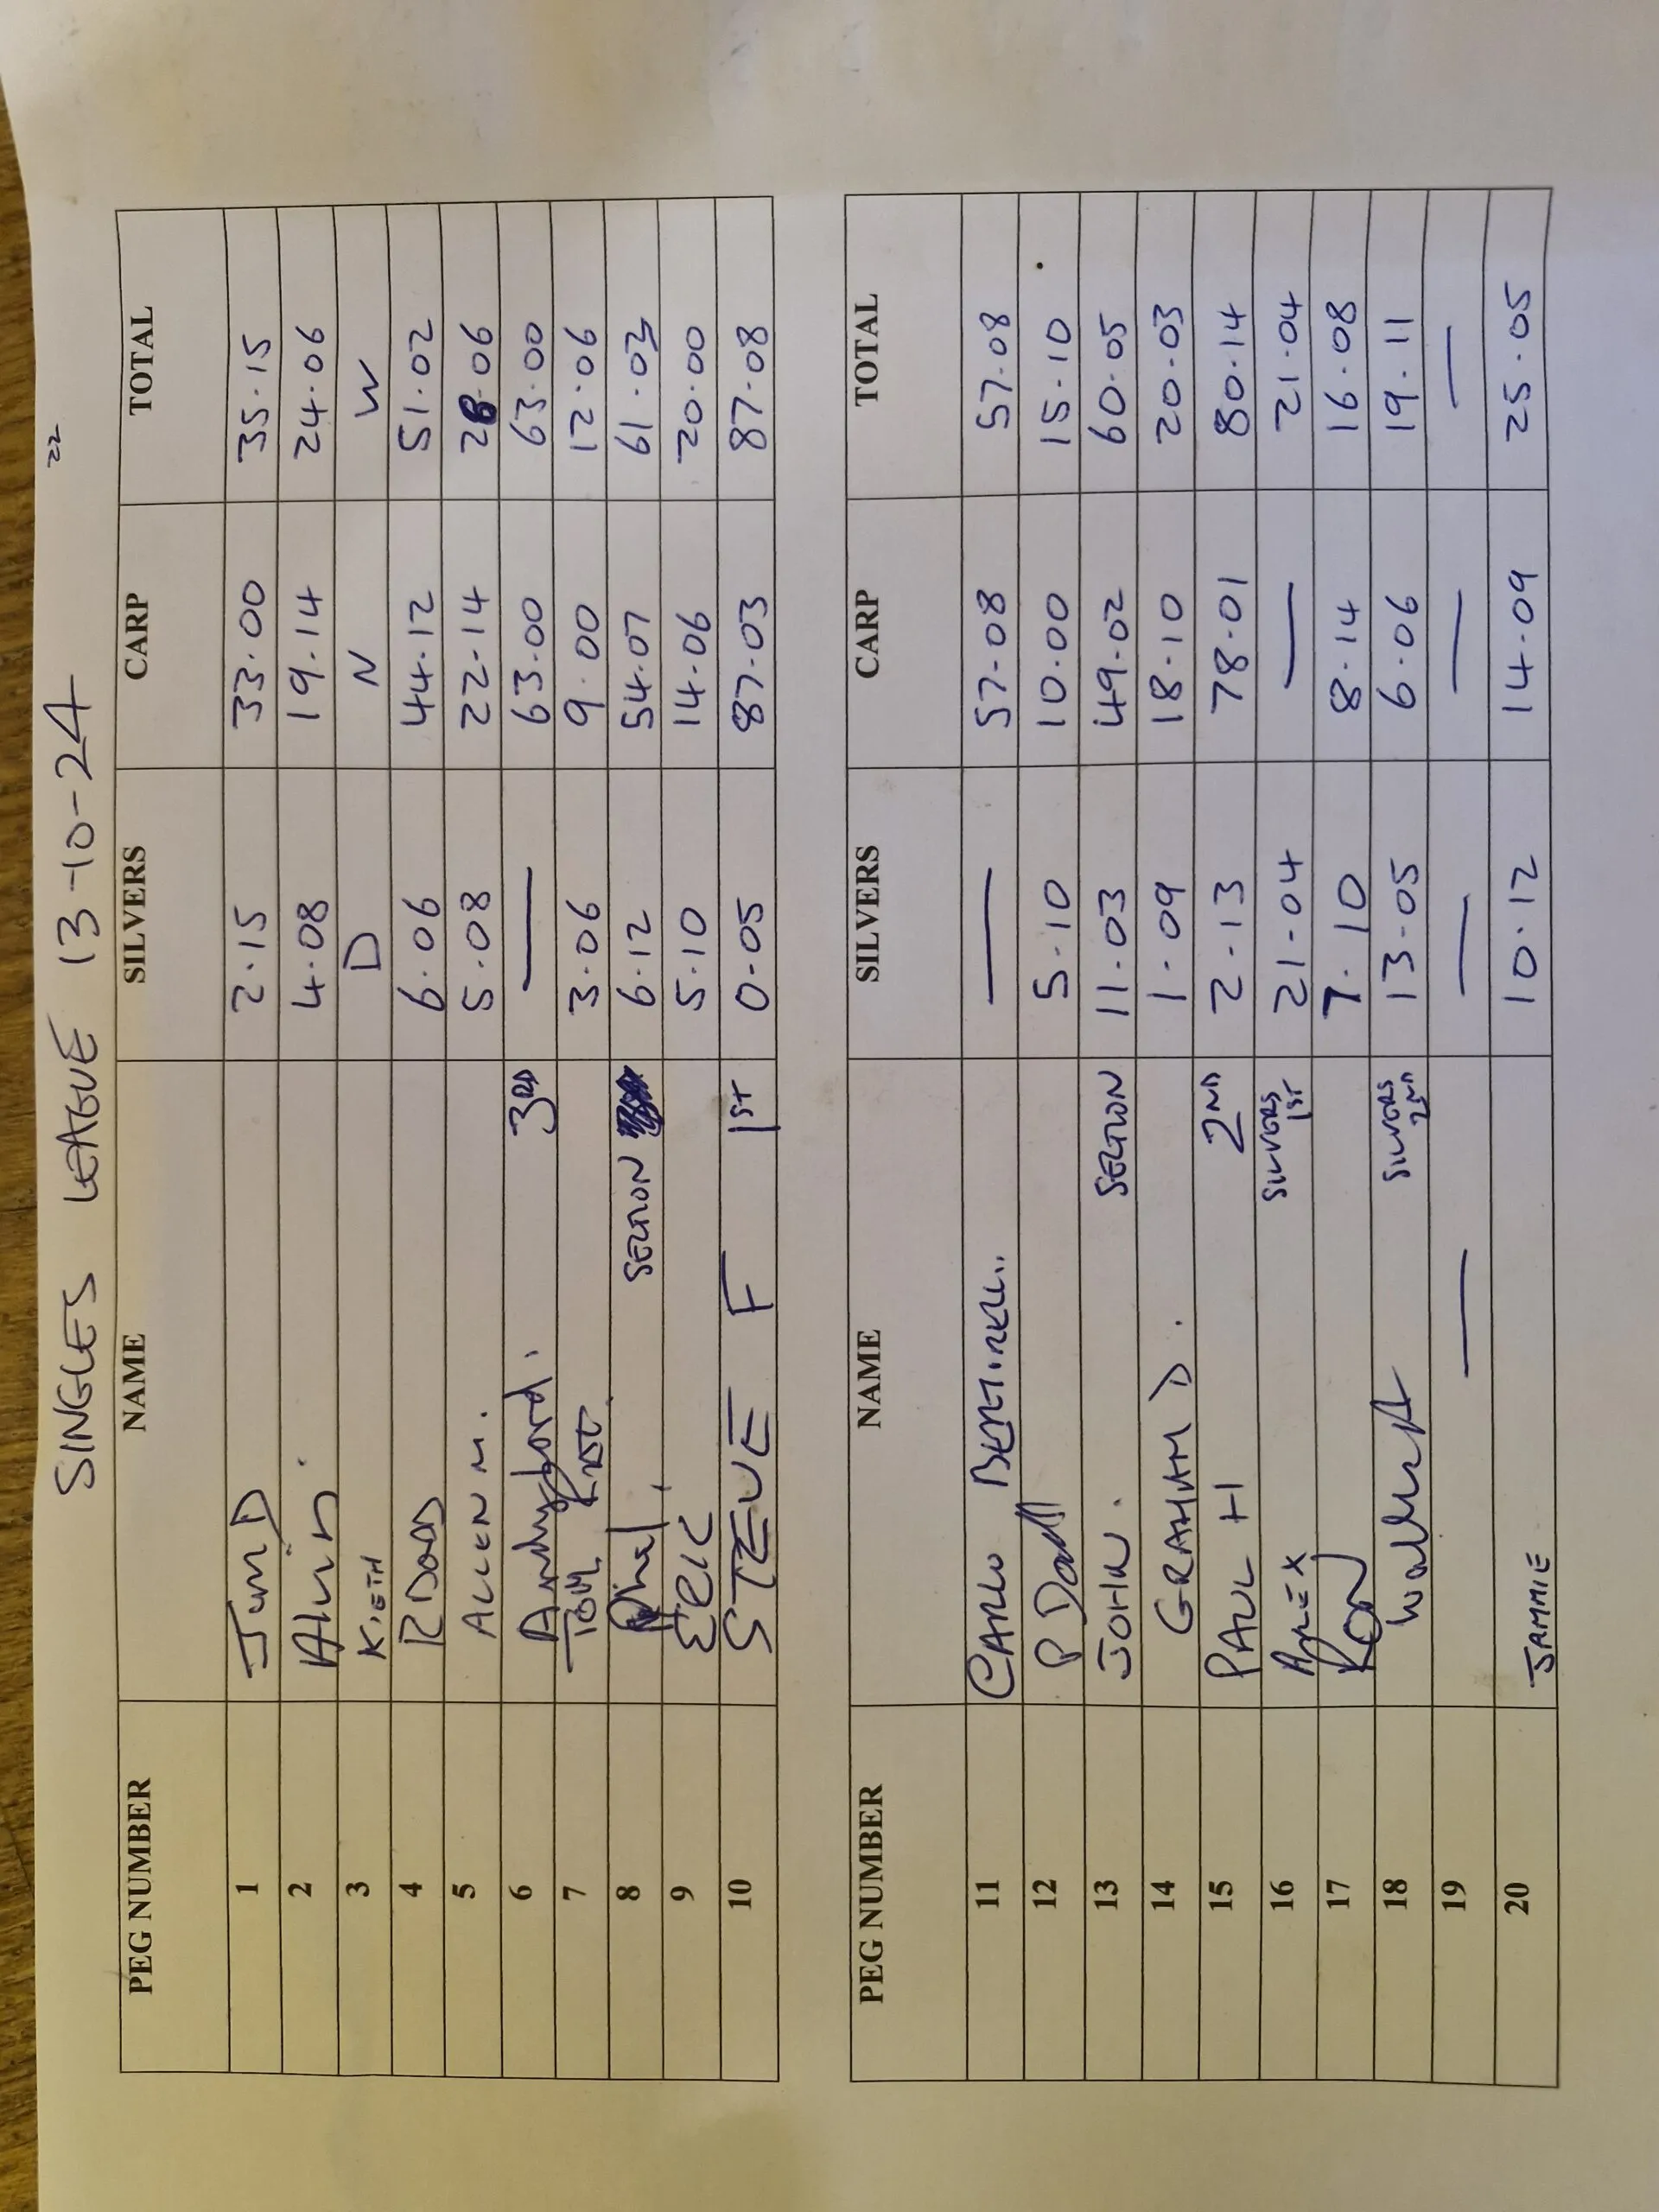 SINGLES LEAGUE 13-10-24 22
PEG NUMBER NAME SILVERS CARP TOTAL
1 Jim D 2.15 33.00 35.15
2 Alvin. 4.08 19.14 24.06
3 KIETH D N W
4 R DODD 6.06 44.12 51.02
5 ALLEN M. 5.08 22.14 28.06
6 3RD — 63.00 63.00
7 TOM 3.06 9.00 12.06
8 Phal. SECTION 6.12 54.07 61.03
9 ERIC 5.10 14.06 20.00
10 STEVE F 1ST 0.05 87.03 87.08
PEG NUMBER NAME SILVERS CARP TOTAL
11 CARLO — 57.08 57.08
12 P Dodd 5.10 10.00 15.10
13 JOHN. SECTION 11.03 49.02 60.05
14 GRAHAM D. 1.09 18.10 20.03
15 PAUL H 2ND 2.13 78.01 80.14
16 SILVERS 1ST 21.04 — 21.04
17 RON 7.10 8.14 16.08
18 SILVERS 2ND 13.05 6.06 19.11
19 — — — —
20 JAMMIE 10.12 14.09 25.05